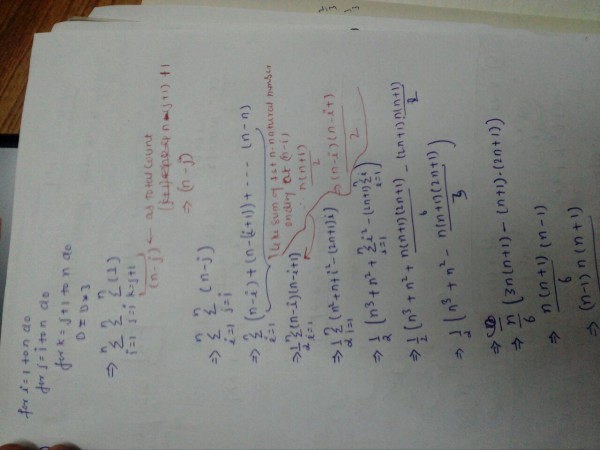 for i=1 to n do
for j=i to n do
for k=j+1 to n do
D=D*3
⇒ n∑i=1 n∑j=i n∑k=j+1 (1)
(n-j) ← as total count
⇒ (n-j)
⇒ n∑i=1 n∑j=i (n-j)
⇒ n∑i=1 (n-i) + (n-(i+1)) + ---- (n-n)
Like sum of 1st n-natural number
ending at (n-i)
∴ n(n+1)/2
⇒ (n-i)(n-i+1)/2
⇒ 1/2 n∑i=1 (n-i)(n-i+1)
⇒ 1/2 n∑i=1 (n²+n+i²-(2n+1)i)
⇒ 1/2 (n³+n²+n∑i=1 i²-(2n+1)n∑i=1 i)
⇒ 1/2 (n³+n²+n(n+1)(2n+1)/6 - (2n+1)n(n+1)/2
⇒ 1/2 (n³+n² - n(n+1)(2n+1)/3)
⇒ n/6 (3n(n+1) - (n+1)·(2n+1))
⇒ n(n+1)(n-1)/6
⇒ (n-1)n(n+1)/6